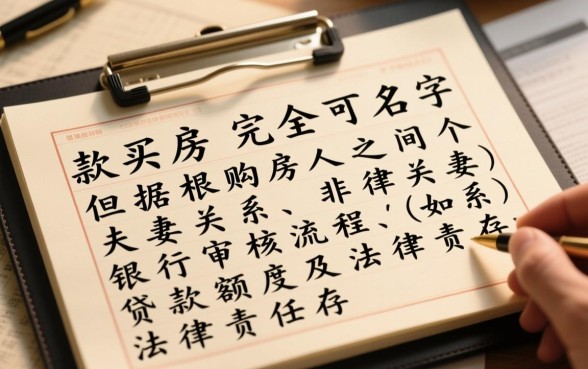 款买房 完全可名字
但据根购房人之间个
夫妻关系、非律关妻)
银行审核流程、(如系)
贷款额度及法律责存
法律责任存